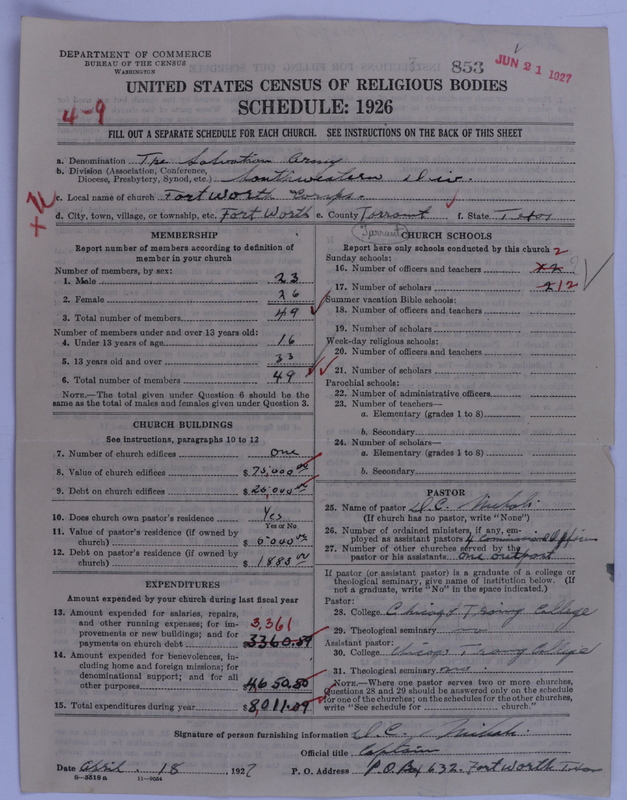 DEPARTMENT OF COMMERCE
BUREAU OF THE CENSUS
WASHINGTON
853
JUN 21 1927
UNITED STATES CENSUS OF RELIGIOUS BODIES
SCHEDULE: 1926
4-9
FILL OUT A SEPARATE SCHEDULE FOR EACH CHURCH. SEE INSTRUCTIONS ON THE BACK OF THIS SHEET
a. Denomination The Salvation Army
b. Division (Association, Conference, Diocese, Presbytery, Synod, etc.) Southwestern Div.
c. Local name of church Fort Worth Corps.
d. City, town, village, or township, etc. Fort Worth e. County Torrant f. State Texas
(Tarrant)
MEMBERSHIP
Report number of members according to definition of member in your church
Number of members, by sex:
1. Male 23
2. Female 26
3. Total number of members 49
Number of members under and over 13 years old:
4. Under 13 years of age 16
5. 13 years old and over 33
6. Total number of members 49
NOTE.—The total given under Question 6 should be the same as the total of males and females given under Question 3.
CHURCH BUILDINGS
See instructions, paragraphs 10 to 12
7. Number of church edifices one
8. Value of church edifices $ 75,000 00
9. Debt on church edifices $
10. Does church own pastor's residence Yes
Yes or No
11. Value of pastor's residence (if owned by church) $
12. Debt on pastor's residence (if owned by church) $ 1885 00
EXPENDITURES
Amount expended by your church during last fiscal year
13. Amount expended for salaries, repairs, and other running expenses; for improvements or new buildings; and for payments on church debt 3,361 3360.59
14. Amount expended for benevolences, including home and foreign missions; for denominational support; and for all other purposes 4650.50
15. Total expenditures during year $ 8,011.09
CHURCH SCHOOLS
Report here only schools conducted by this church
Sunday schools:
16. Number of officers and teachers 2
17. Number of scholars 12
Summer vacation Bible schools:
18. Number of officers and teachers
19. Number of scholars
Week-day religious schools:
20. Number of officers and teachers
21. Number of scholars
Parochial schools:
22. Number of administrative officers
23. Number of teachers—
a. Elementary (grades 1 to 8)
b. Secondary
24. Number of scholars—
a. Elementary (grades 1 to 8)
b. Secondary
PASTOR
25. Name of pastor
(If church has no pastor, write "None")
26. Number of ordained ministers, if any, employed as assistant pastors 4
27. Number of other churches served by the pastor or his assistants one outpost
If pastor (or assistant pastor) is a graduate of a college or theological seminary, give name of institution below. (If not a graduate, write "No" in the space indicated.)
Pastor:
28. College Chicago Trong College
29. Theological seminary no
Assistant pastor:
30. College Chicago Trong College
31. Theological seminary no
NOTE.—Where one pastor serves two or more churches, Questions 28 and 29 should be answered only on the schedule for one of the churches; on the schedules for the other churches, write "See schedule for ........ church."
Signature of person furnishing information
Official title Captain
Date April 18 1927 P. O. Address P.O. Box 632. Fort Worth Texas
8-5518a 11-9054